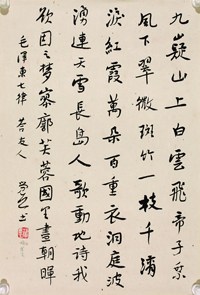 九嶷山上白雲飛帝子乘
風下翠微斑竹一枝千滴
淚紅霞萬朵百重衣洞庭波
湧連天雪長島人歌動地詩我
欲因之夢寥廓芙蓉國里盡朝暉
毛澤東七律 答友人